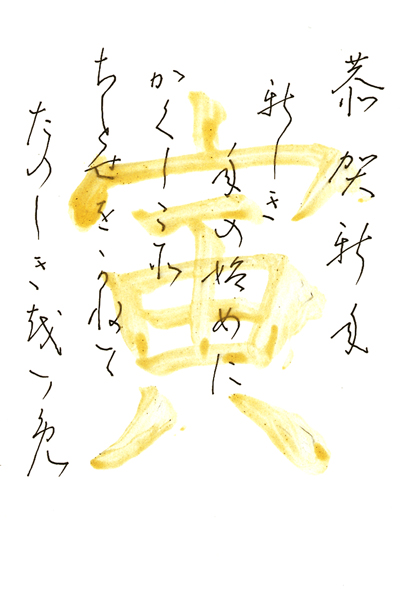 恭賀新年
新しき
年の始めに
かくしこそ
ちとせをかねて
たのしき越つ免
寅